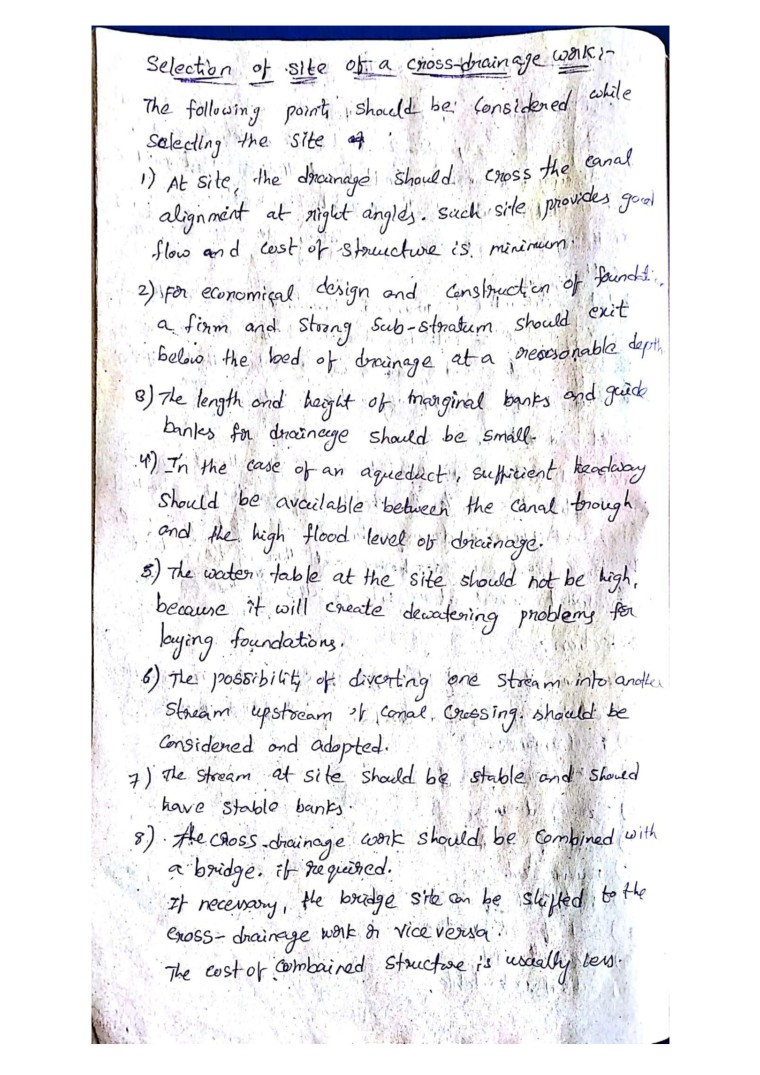 Selection of site of a cross-drainage work:-
The following points should be considered while
selecting the site
1) At site, the drainage should cross the canal
alignment at right angles. Such site provides good
flow and cost of structure is minimum.
2) For economical design and construction of foundati
a firm and strong sub-stratum should exit
below the bed of drainage at a reasonable depth
3) The length and height of marginal banks and guide
banks for drainage should be small.
4) In the case of an aqueduct, sufficient headway
should be available between the canal trough
and the high flood level of drainage.
5.) The water table at the site should not be high,
because it will create dewatering problems for
laying foundations.
6) The possibility of diverting one stream into another
stream upstream of canal crossing should be
considered and adopted.
7) The stream at site should be stable and should
have stable banks.
8). The cross-drainage work should be combined with
a bridge. if required.
If necessary, the bridge site can be shifted to the
cross-drainage work or vice versa.
The cost of combained structure is usually less.